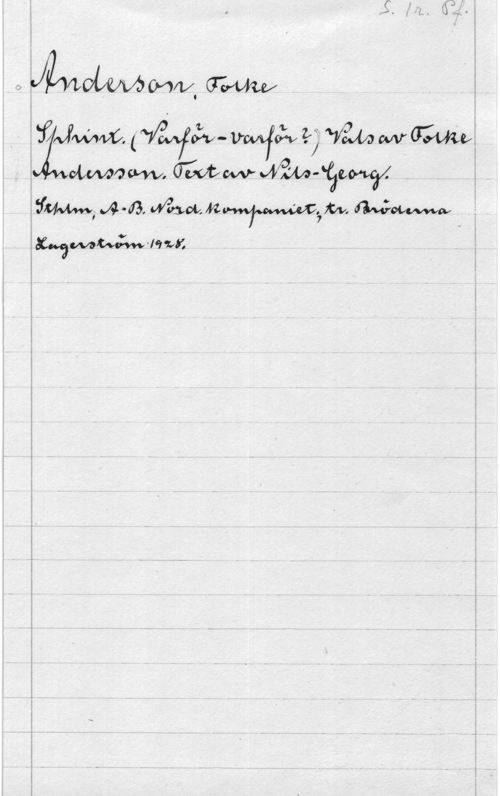 S. tr. Pf.
Anderson, Folke
Sphinx. (Varför-varför?) Vals av Folke
Andersson. Text av Nils-Georg.
Sthlm, A.-B. Nord. kompaniet; tr. Bröderna
Lagerström 1928.